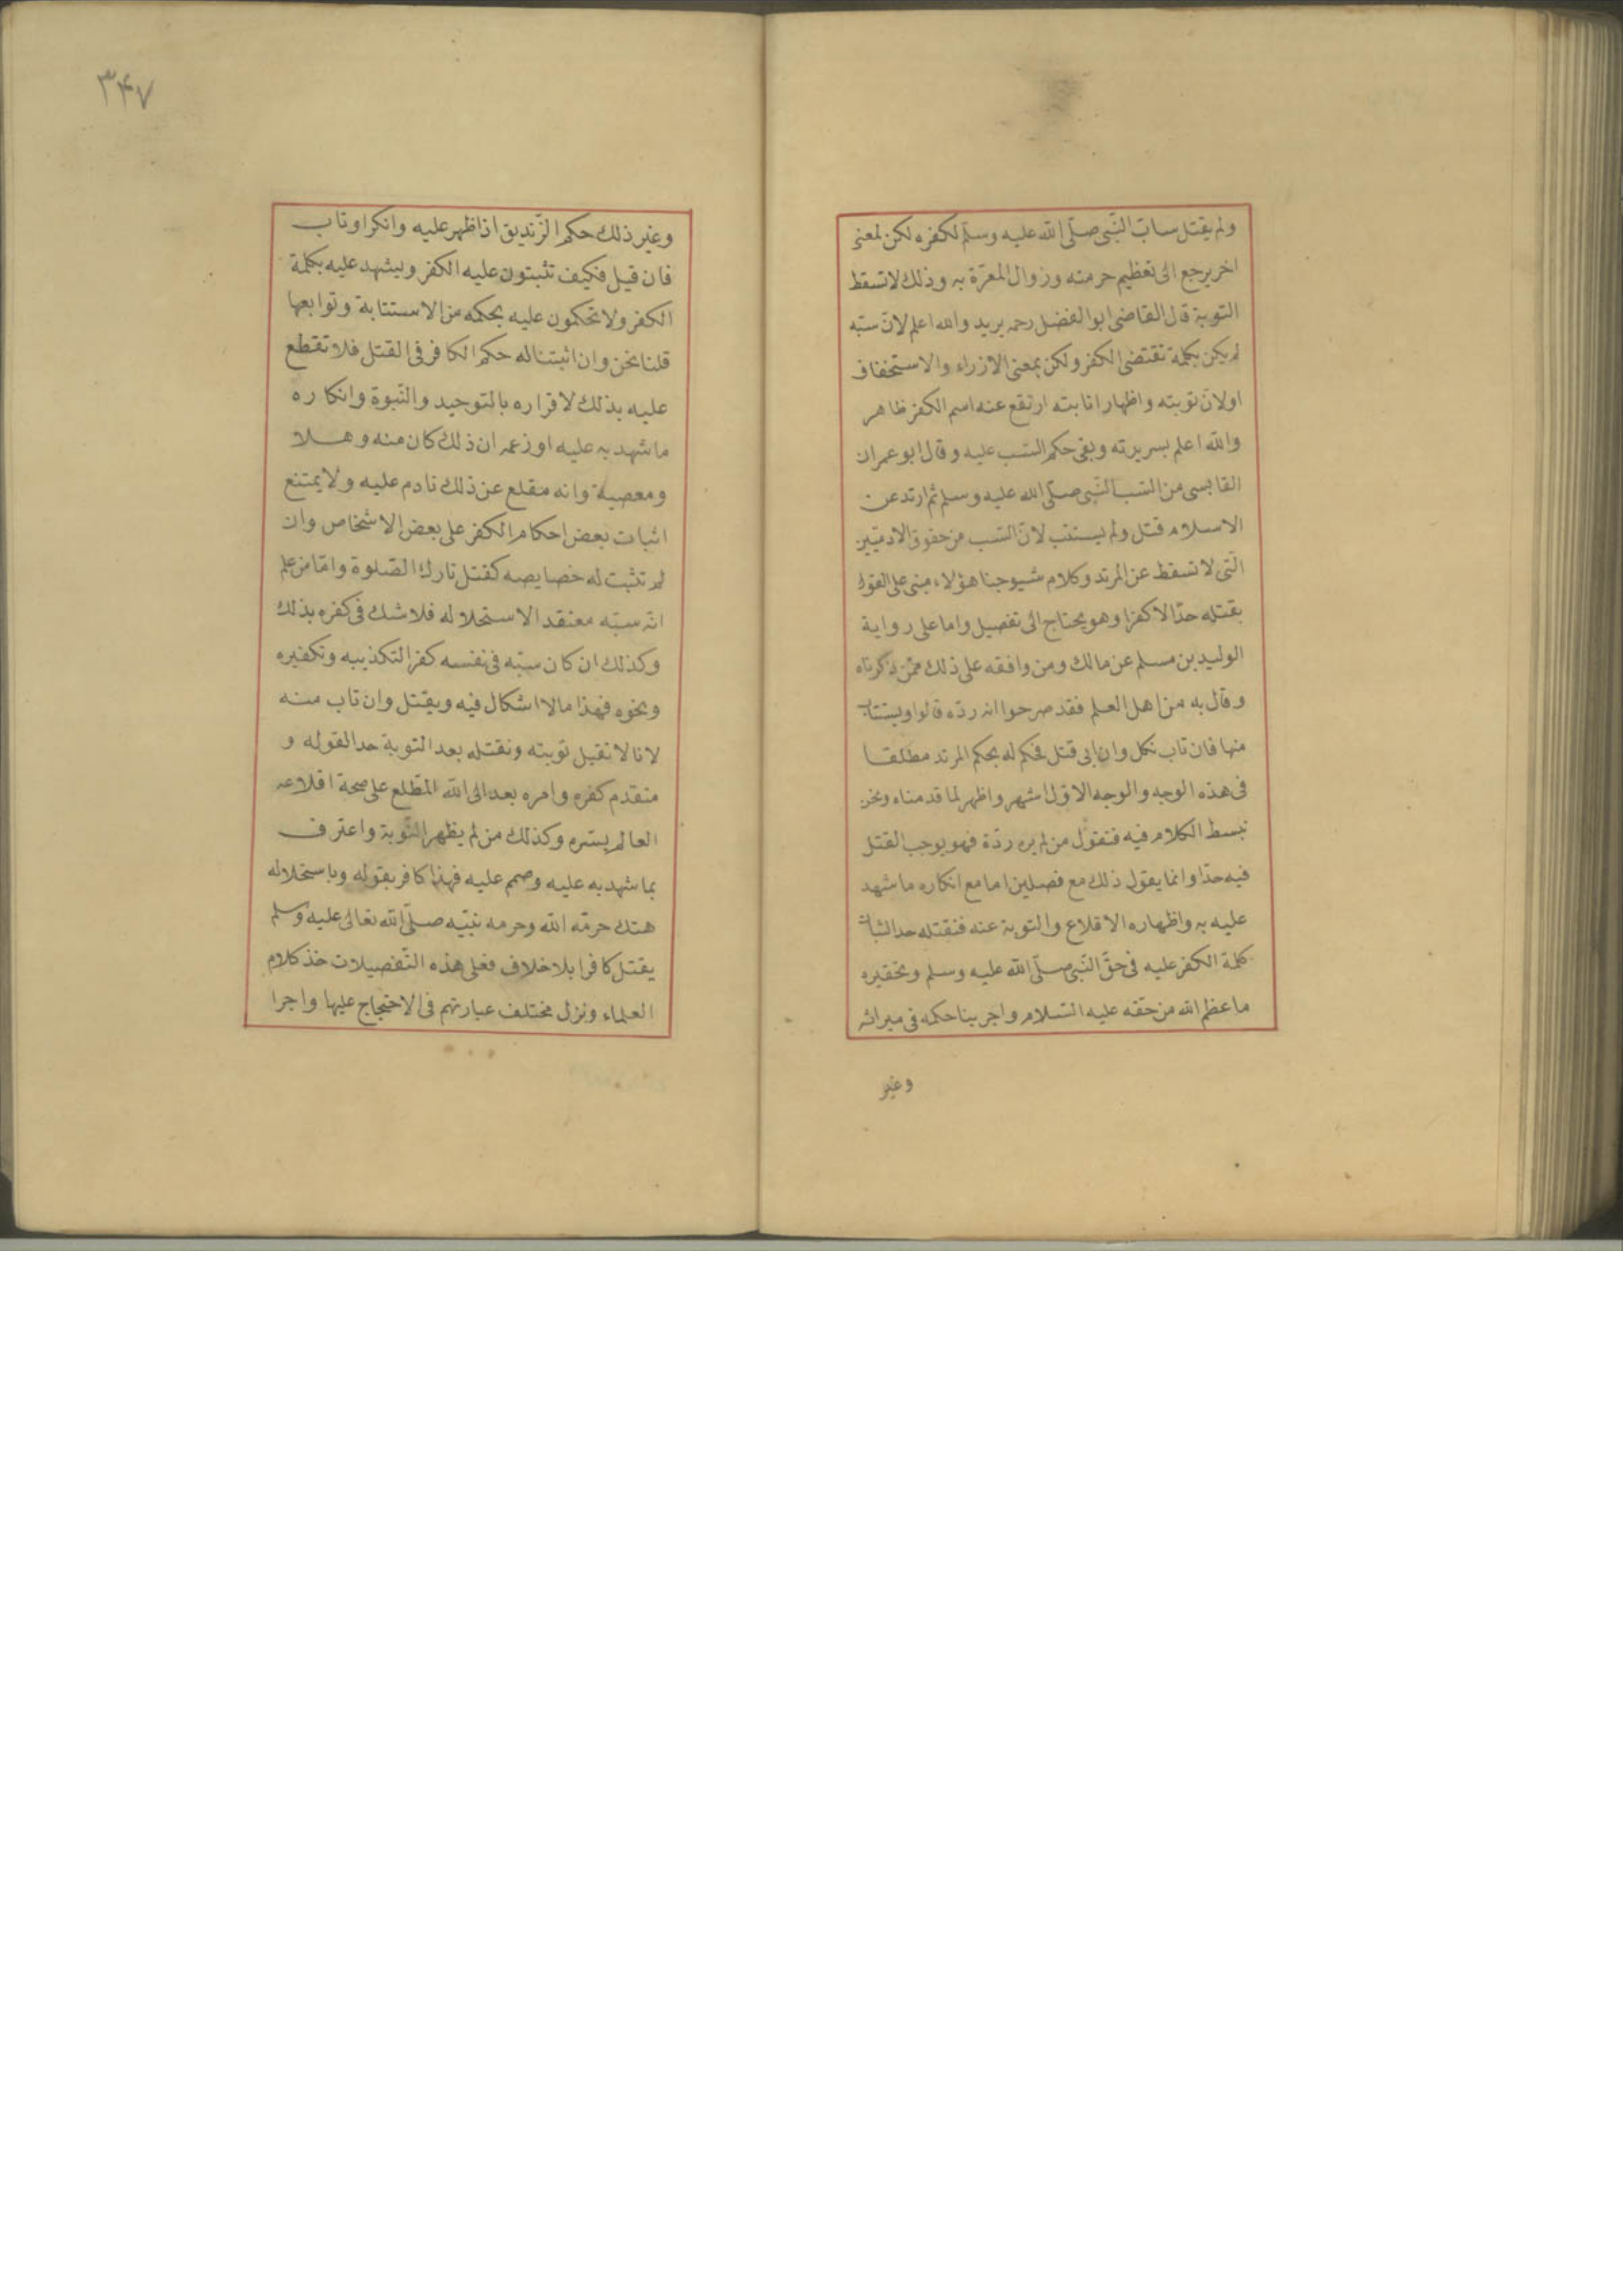 ولم يقتل ساب النّبى صلّى الله عليه وسلّم لكفره لكن لمعنى
اخر يرجع الى تعظيم حرمته وزوال المعرّة به وذلك لا تسقط
التوبة قال القاضى ابو الفضل رحمه يريد والله اعلم لانّ سبّه
لم يكن بكلمة تقتضى الكفر ولكن بمعنى الازراء والاستخفاف
اولانّ توبته واظهار انابته ارتفع عنه اسم الكفر ظاهر
والله اعلم بسريرته وبقى حكم السّب عليه وقال ابو عمران
القابسى من السّب النّبى صلّى الله عليه وسلم ثم ارتد عن
الاسلام قتل ولم يستتب لانّ السّب من حقوق الادميّين
الّتى لا تسقط عن المرتد وكلام شيوخنا هؤلاء مبنى على القول
بقتله حدّا لا كفرا وهو يحتاج الى تفصيل واما على رواية
الوليد بن مسلم عن مالك ومن وافقه على ذلك ممّن ذكرناه
وقال به من اهل العلم فقد صرحوا انه ردّه قالوا ويستتاب
منها فان تاب نكل وان ابى قتل فحكم له بحكم المرتد مطلقا
فى هذه الوجه والوجه الاوّل اشهر واظهر لما قدمناه ونحن
نبسط الكلام فيه فنقول من لم يره ردّة فهو يوجب القتل
فيه حدّا وانما يقول ذلك مع فصلين اما مع انكاره ما شهد
عليه به واظهاره الاقلاع والتوبة عنه فنقتله حدا لثبات
كلمة الكفر عليه فى حقّ النّبى صلّى الله عليه وسلم وتحقيره
ما عظم الله من حقّه عليه السّلام واجرينا حكمه فى ميراثه
وغير
٣٤٧
وغير ذلك حكم الزّنديق اذا ظهر عليه وانكر او تاب
فان قيل فكيف تثبتون عليه الكفر ويشهد عليه بكلمة
الكفر ولا تحكمون عليه بحكمه من الاستتابة وتوابعها
قلنا نحن وان اثبتنا له حكم الكافر فى القتل فلا تقطع
عليه بذلك لاقراره بالتوحيد والنّبوة وانكاره
ما شهد به عليه او زعم ان ذلك كان منه وهلا
ومعصية وانه مقلع عن ذلك نادم عليه ولا يمتنع
اثبات بعض احكام الكفر على بعض الاشخاص وان
لم تثبت له خصايصه كقتل تارك الصّلوة وامّا من علم
انّه سبّه معتقد الاستحلاله فلا شك فى كفره بذلك
وكذلك ان كان سبّه فى نفسه كفر التكذيبه وتكفيره
ونحوه فهذا مالا اشكال فيه ويقتل وان تاب منه
لانا لا نقبل توبته ونقتله بعد التوبة حدا لقوله و
متقدم كفره وامره بعد الى الله المطّلع على صحة اقلاعه
العالم بسّره وكذلك من لم يظهر التّوبة واعترف
بما شهد به عليه وصمم عليه فهذا كافر بقوله وباستحلاله
هتك حرمّه الله وحرمه نبيّه صلّى الله تعالى عليه وسلم
يقتل كافرا بلا خلاف فعلى هذه التّفصيلات خذ كلام
العلماء ونزل مختلف عبارتهم فى الاحتجاج عليها واجرا